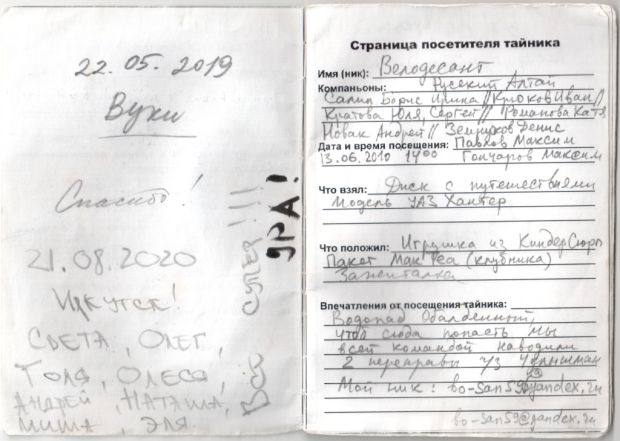 22.05.2019
Вуки
Спасибо!
21.08.2020
Иркутск!
СВЕТА, ОЛЕГ,
ТОЛЯ, ОЛЕСЯ,
АНДРЕЙ, НАТАША,
МИША, ЭЛЯ.
ВСЁ СУПЕР!!!
УРА!
Страница посетителя тайника
Имя (ник): Велодесант
Компаньоны: Русский Алтай
Борис Ирина // Крюков Иван //
Кратова Юля, Сергей // Романова Катя
Новак Андрей // Денис
Дата и время посещения: Павлов Максим
13.06.2010 1400 Гончаров Максим
Что взял: Диск с путешествиями
Модель УАЗ Хантер
Что положил: Игрушка из КиндерСюрп
Пакет МакТеа (клубника)
Зажигалка
Впечатления от посещения тайника:
Водопад Обалденный,
чтоб сюда попасть мы
всей командой наводили
2 переправы ч/з Чулышман
Мой ник: bo-san59@yandex.ru
bo-san59@yandex.ru